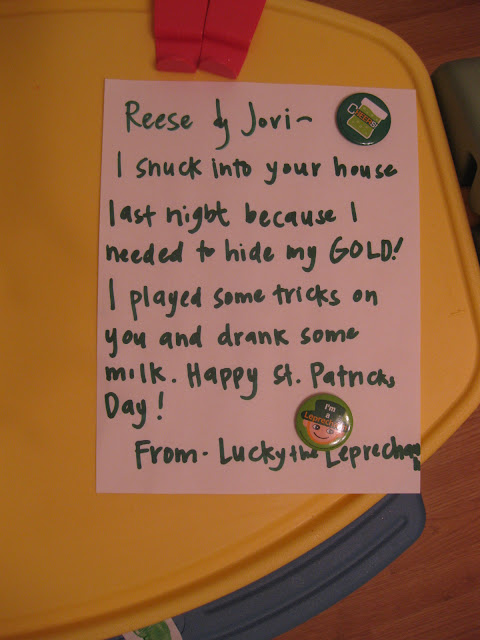 Reese & Jori~
CHEERS
I snuck into your house
last night because I
needed to hide my GOLD!
I played some tricks on
you and drank some
milk. Happy St. Patricks
Day!
I'm
a
Leprechaun
From - Lucky the Leprechaun